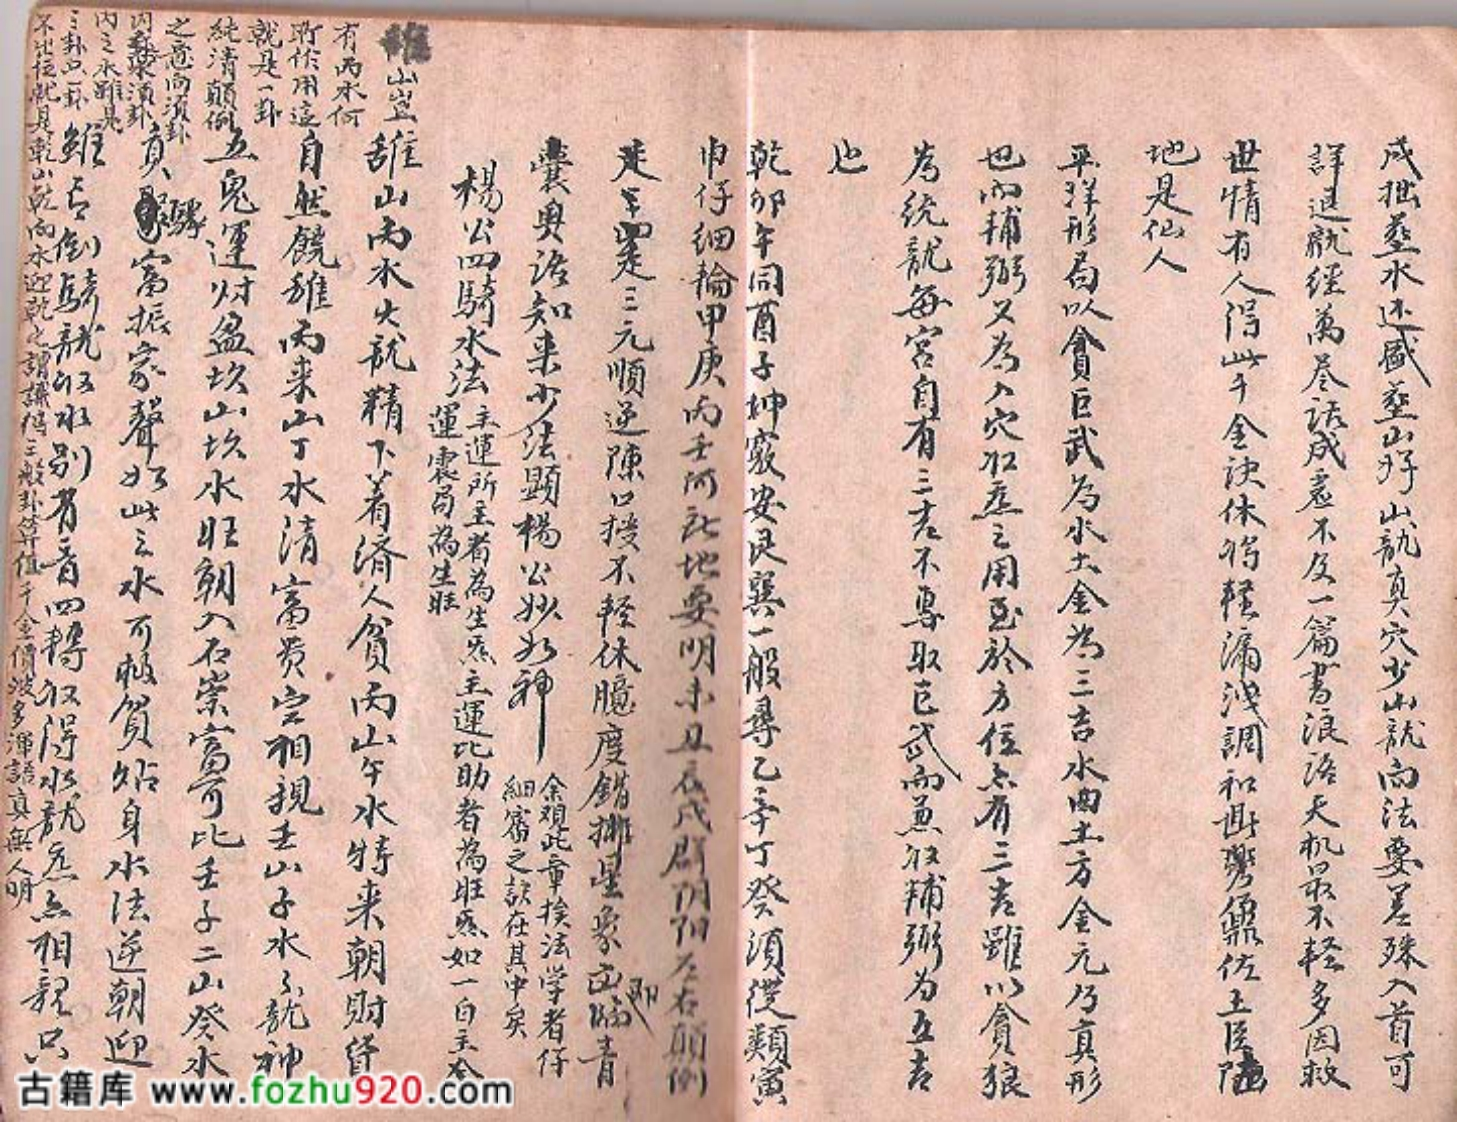 成拙塟水还盛塟山好山龍真穴少山龍向法要差殊入首可
詳退龍經萬卷話成虛不及一篇書浪洛天机最不軽多因救
世情有人得此千金訣休將軽漏洩調和鼎鼐佐王臣陸
地是仙人
平洋形局以貪巨武為水土金為三吉水曲土方金元乃真形
也而輔弼又為入穴收氣之用至於方位亦有三吉雖以貪狼
為統龍每宮自有三吉不專取巨武而兼收輔弼为五吉
也
乾卯午同酉子坤竅安艮巽一般尋乙辛丁癸須從類寅
申仔細輪甲庚丙壬河此地要明未丑辰戌辟阴阳左右顛倒
走三元順逆陳口授不軽休臆度錯排星象即青
囊奥语知来少法顯楊公妙如神
余观此章挨法学者仔
細審之訣在其中矣
楊公四騎水法
主運所主者為生炁主運比助者為旺炁如一白主令
運震局為生旺
離山丙水火龍精下着济人貧丙山午水特来朝財谷
自然饒離丙来山丁水清富贵定相親壬山子水水龍神
五鬼運财盈坎山坎水旺朝入石崇富可比壬子二山癸水
真驟富振家聲如此之水可救貧站身水法逆朝迎
雖言倒騎龍收水别有音四轉收得水龍炁亦相親只
離山豈
有丙水何
所作用這
就是一卦
純清顛倒
之意向須卦
内水須卦
内之水雖是
三卦只一卦
不出位就是乾山乾向水迎乾之謂識得三般卦算值千金價波多渾語真無人明
古籍库 www.fozhu920.com